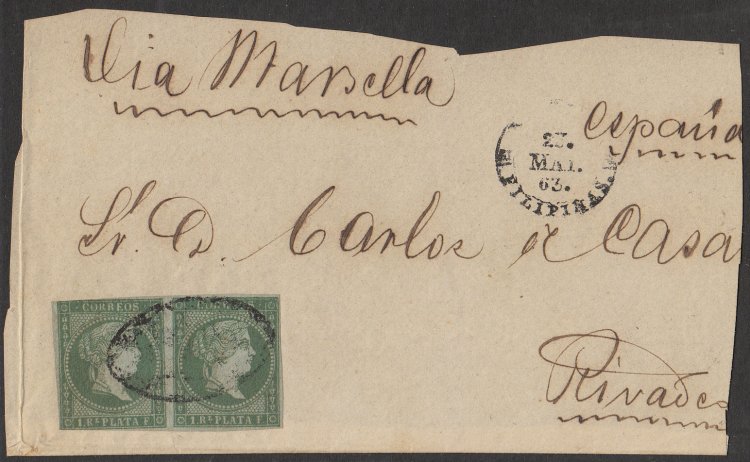 Via Marsella
España
23.
MAI.
63.
FILIPINAS.
Sr. D. Carlos
Casa
CORREOS CORREOS
1. Rl. PLATA F. 1. Rl. PLATA F.